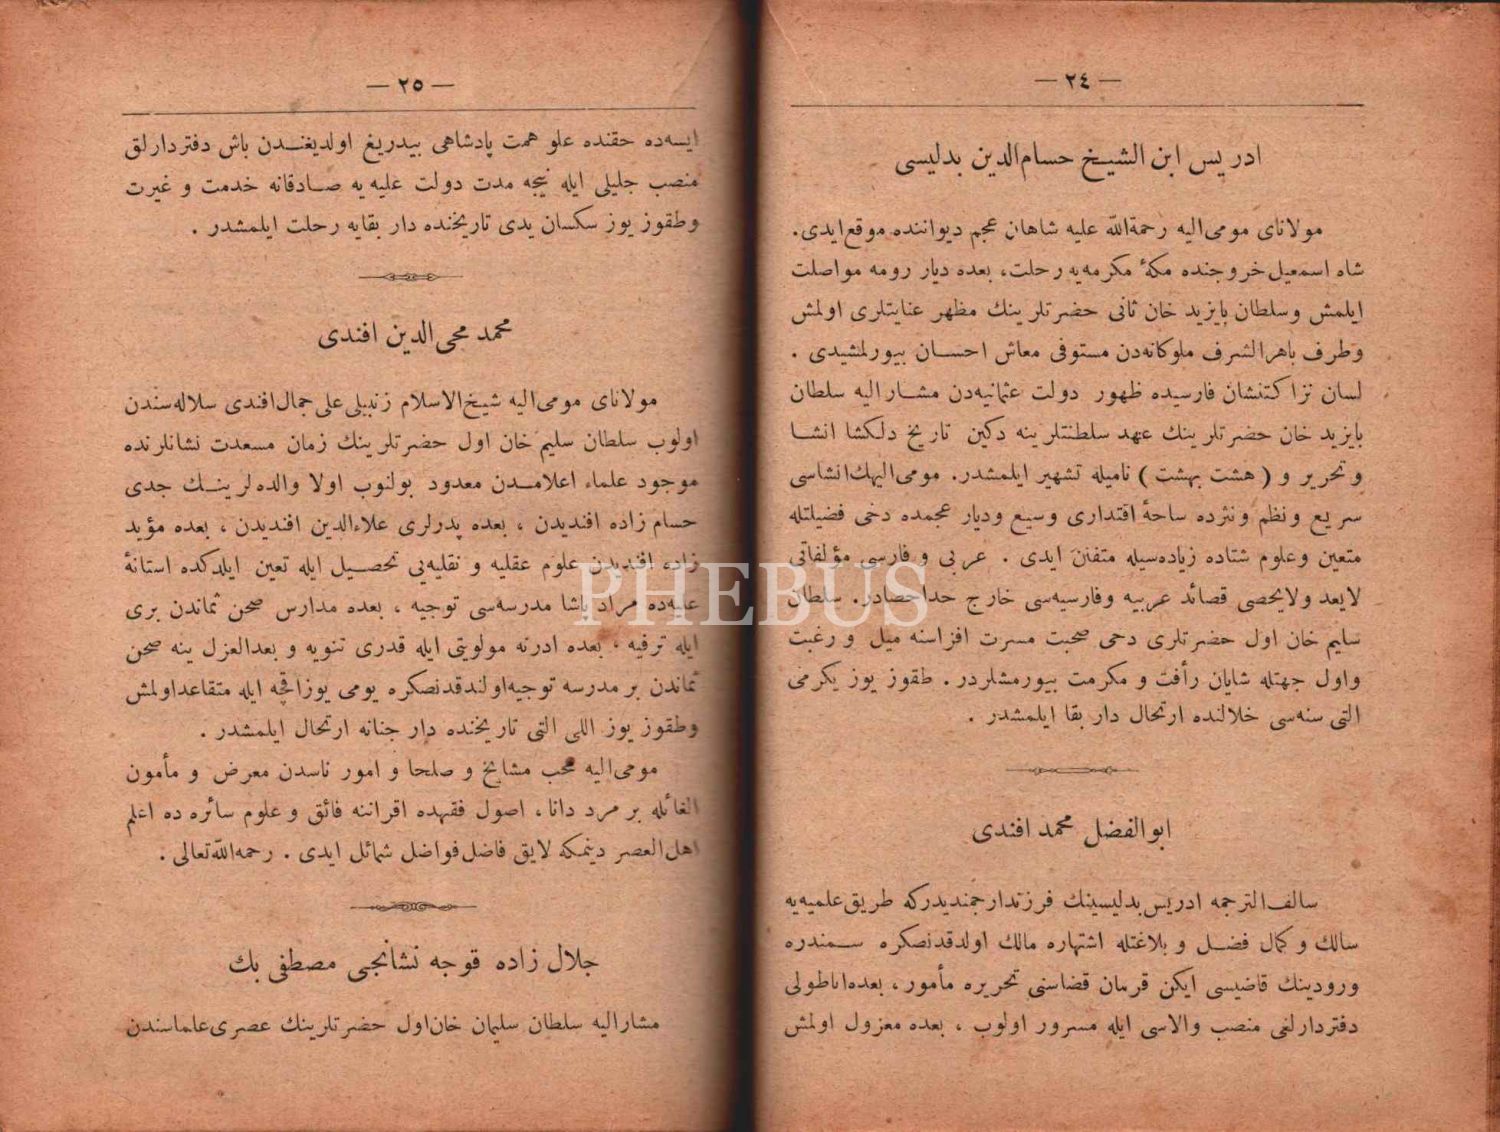 — ٢٤ —
ادريس ابن الشيخ حسام‌الدين بدليسى
مولاناى مومى‌اليه رحمةالله عليه شاهان عجم ديواننده موقع‌ايدى.
شاه اسمعيل خروجنده مكۀ مكرمه‌يه رحلت، بعده ديار رومه مواصلت
ايلمش وسلطان بايزيد خان ثانى حضرتلرينك مظهر عنايتلرى اولمش
وطرف باهرالشرف ملوكانه‌دن مستوفى معاش احسان بيورلمشيدى .
لسان نزاكتنشان فارسيده ظهور دولت عثمانيه‌دن مشاراليه سلطان
بايزيد خان حضرتلرينك عهد سلطنتلرينه دكين تاريخ دلكشا انشا
و تحرير و ( هشت بهشت ) ناميله تشهير ايلمشدر. مومى‌اليهك‌انشاسى
سريع ونظم ونثرده ساحۀ اقتدارى وسيع وديار عجمده دخى فضيلتله
متعين وعلوم شتاده زياده‌سيله متفنن ايدى . عربى و فارسى مؤلفاتى
لايعد ولايحصى قصائد عربيه وفارسيه‌سى خارج حداحصادر. سلطان
سليم خان اول حضرتلرى دخى صحبت مسرت افزاسنه ميل و رغبت
واول جهتله شايان رأفت و مكرمت بيورمشلردر. طقوز يوز يكرمى
التى سنه‌سى خلالنده ارتحال دار بقا ايلمشدر .
ابوالفضل محمد افندى
سالف‌الترجمه ادريس بدليسينك فرزندارجمنديدركه طريق‌علميه‌يه
سالك و كمال فضل و بلاغتله اشتهاره مالك اولدقدنصكره سمندره
ورودينك قاضيسى ايكن قرمان قضاسنى تحريره مأمور، بعده‌اناطولى
دفتردارلغى منصب والاسى ايله مسرور اولوب ، بعده معزول اولمش
— ٢٥ —
ايسه‌ده حقنده علو همت پادشاهى بيدريغ اولديغندن باش دفتردارلق
منصب جليلى ايله نيجه مدت دولت عليه‌يه صادقانه خدمت و غيرت
وطقوز يوز سكسان يدى تاريخنده دار بقايه رحلت ايلمشدر .
محمد محى‌الدين افندى
مولاناى مومى‌اليه شيخ‌الاسلام زنبيلى‌على‌جمال‌افندى سلاله‌سندن
اولوب سلطان سليم خان اول حضرتلرينك زمان مسعدت نشانلرنده
موجود علماء اعلامدن معدود بولنوب اولا والده‌لرينك جدى
حسام زاده افنديدن ، بعده پدرلرى علاءالدين افنديدن ، بعده مؤيد
زاده افنديدن علوم عقليه و نقليه‌يى تحصيل ايله تعين ايلدكده استانۀ
عليه‌ده مراد پاشا مدرسه‌سى توجيه ، بعده مدارس صحن ثماندن برى
ايله ترفيه ، بعده ادرنه مولويتى ايله قدرى تنويه و بعدالعزل ينه صحن
ثماندن بر مدرسه توجيه‌اولندقدنصكره يومى يوزاقچه ايله متقاعداولمش
وطقوز يوز اللى التى تاريخنده دار جنانه ارتحال ايلمشدر .
مومى‌اليه محب مشايخ و صلحا و امور ناسدن معرض و مأمون
الغائله بر مرد دانا، اصول فقهده اقراننه فائق و علوم سائره ده اعلم
اهل‌العصر دينمكه لايق فاضل‌فواضل شمائل ايدى . رحمه‌الله‌تعالى .
جلال زاده قوجه نشانجى مصطفى بك
مشاراليه سلطان سليمان خان‌اول حضرتلرينك عصرى‌علماسندن
PHEBUS